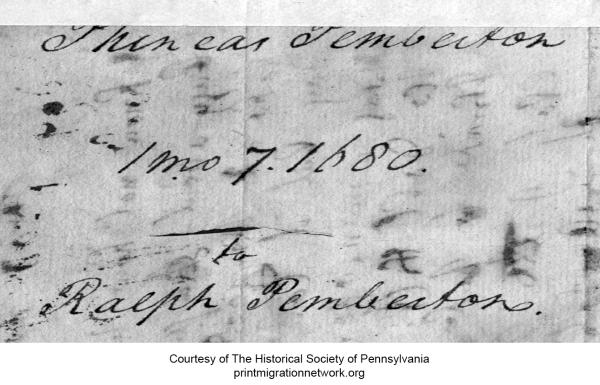 Phineas Pemberton
1mo 7. 1680.
to
Ralph Pemberton.
Courtesy of The Historical Society of Pennsylvania
printmigrationnetwork.org